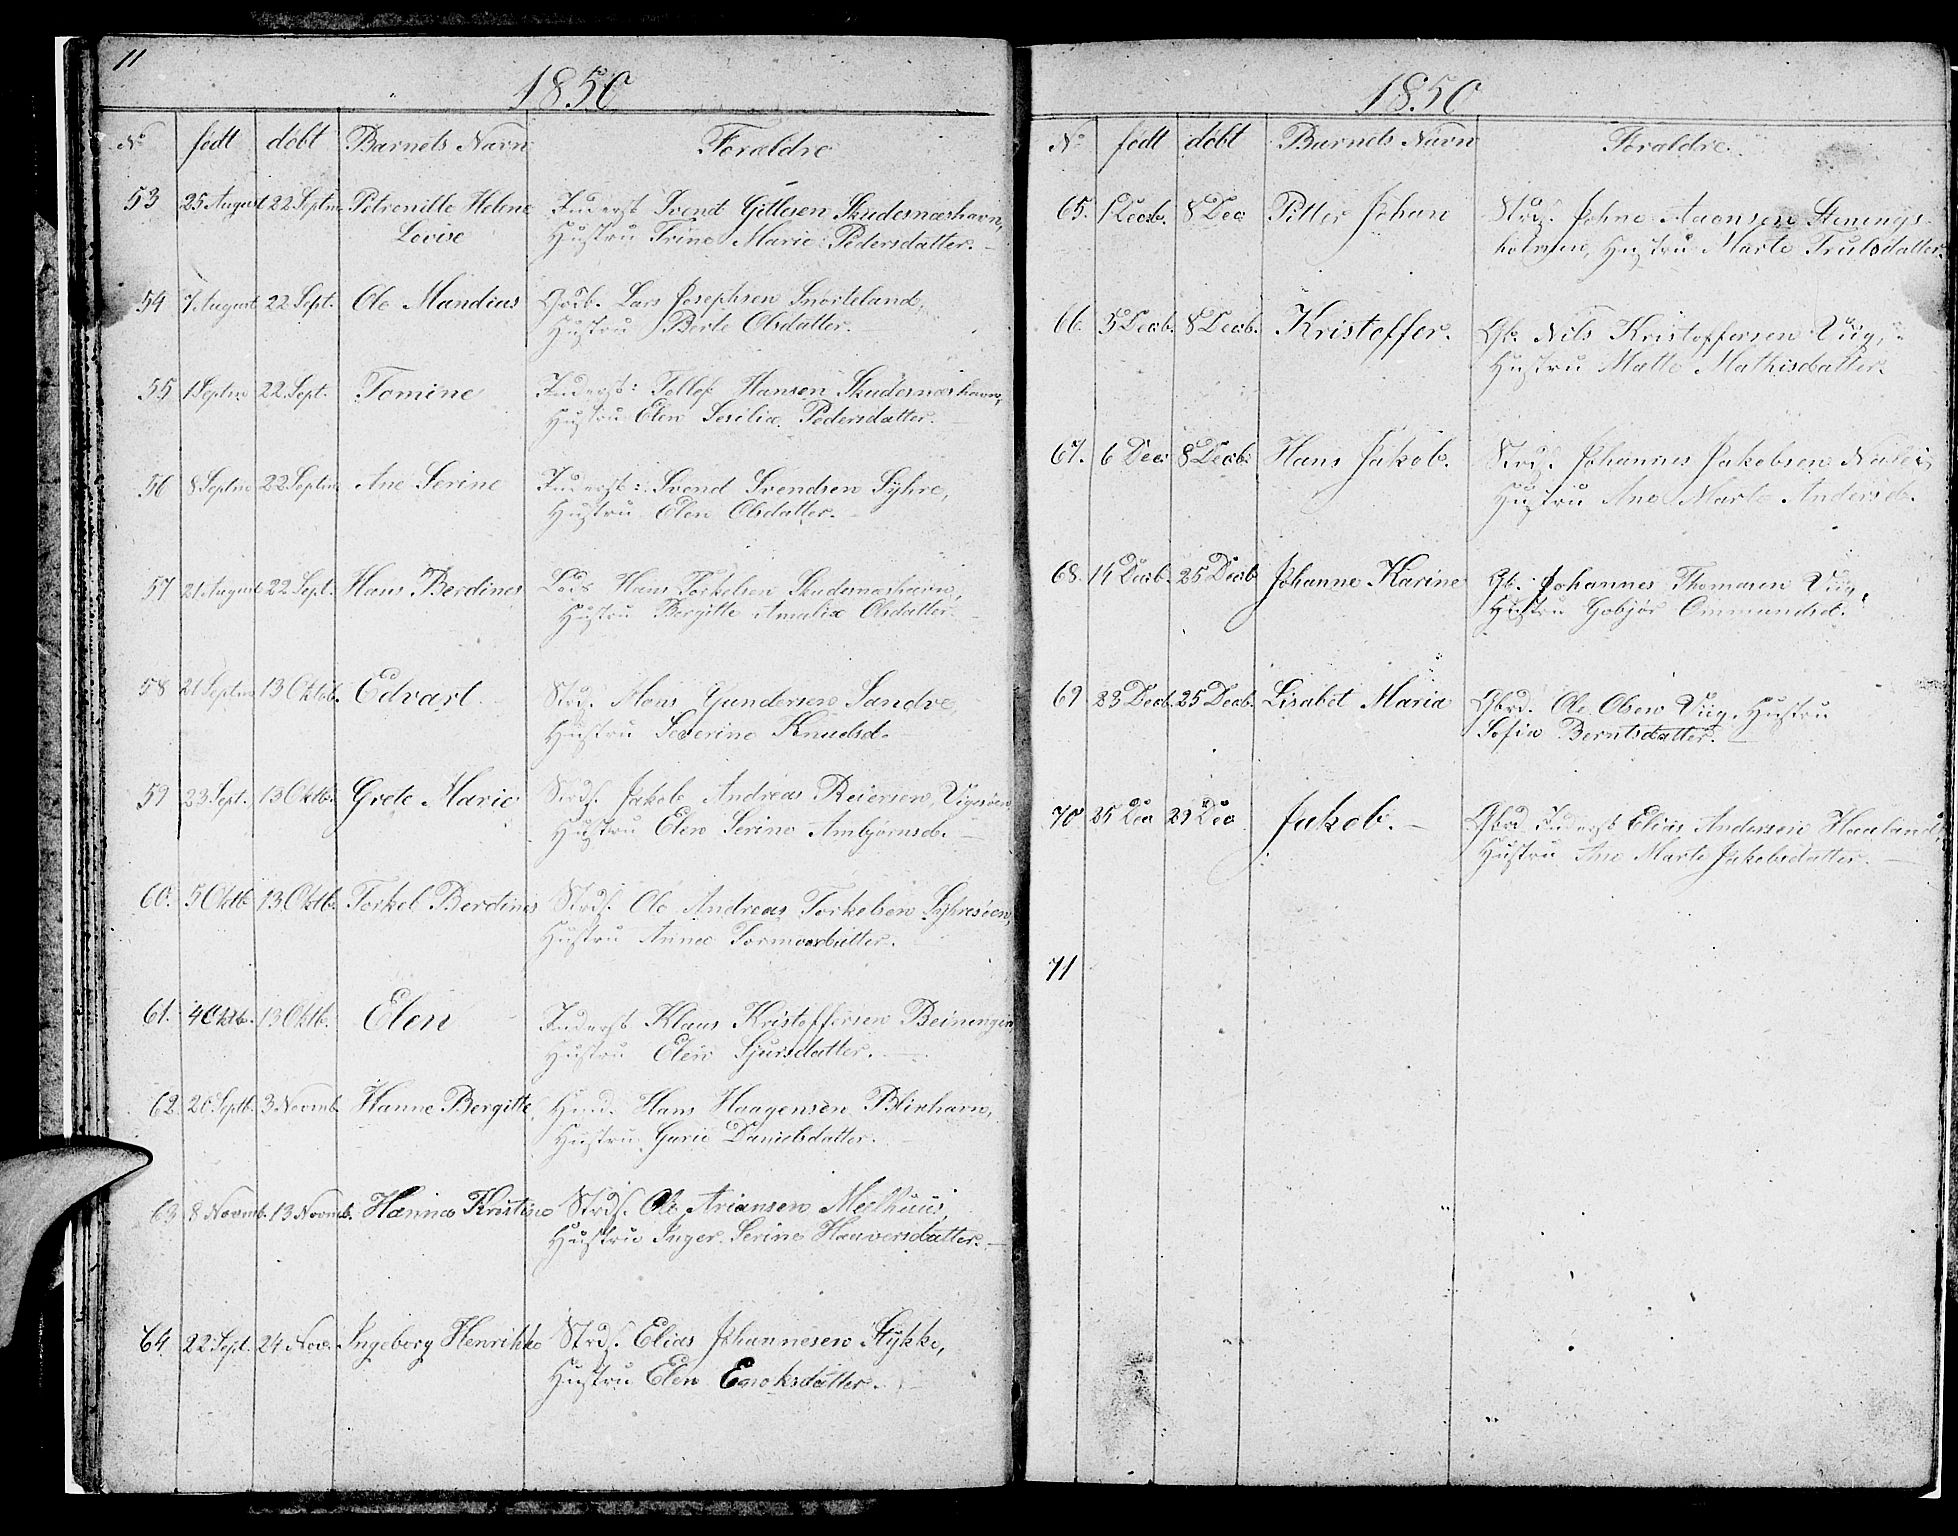 11
1850
No født døbt Barnets Navn Foraldre
53 25 August 22 Septm Petronille Helene Inderst Svend Gitlesen Skudesnæshavn,
Lovise Hustru Trine Marie Pedersdatter.
54 7 August 22 Sept. Ole Mandius Gdb. Lars Josephsen Snørteland,
Hustru Berte Olsdatter.
55 1 Septm 22 Sept. Tomine Inderst: Tollef Hansen Skudesnæshavn,
Hustru Elen Sesilia Pedersdatter.
56 8 Septm 22 Septm Ane Serine Inderst: Svend Svendsen Syhre,
Hustru Elen Olsdatter.
57 21 August 22 Sept. Hans Berdines Lods Hans Torkelsen Skudesnæshavn,
Hustru Bergitte Amalia Olsdatter.
58 21 Septm 13 Oktob. Edvart Strds. Mons Gundersen Sandve
Hustru Severine Knudsd.
59 23 Sept. 13 Oktb. Grete Marie Strds. Jakob Andreas Reiersen, Vigsøen,
Hustru Elen Serine Ambjørnsd.
60. 5 Oktb 13 Oktb. Torkel Berdines Strds. Ole Andreas Torkelsen Syhresøen,
Hustru Anne Tormodsdatter.
61. 4 Oktb. 13 Oktb. Elen Inderst Klaus Kristoffersen Beiningen,
Hustru Elen Sjursdatter.
62 20 Septb. 3 Novmb. Hanne Bergitte Hmd. Hans Haagensen Blixhavn,
Hustru Gurie Danielsdatter.
63 8 Novmb. 13 Novmb. Hanna Kristine Strds. Ole Ariansen Meelhuus,
Hustru Inger Serine Hauversdatter.
64 22 Sept. 24 Nov. Ingeborg Henrikke Strds. Elias Johannesen Stykke,
Hustru Elen Enoksdatter.
1850
No født døbt Barnets Navn Foraldre.
65. 1 Decb. 8 Dec Pitter Johan Strds. Johne Aaonsen Stenings-
holmen, Hustru Marte Trulsdatter.
66. 5 Decb. 8 Decb. Kristoffer. Gb. Nils Kristoffersen Viig,
Hustru Malle Mathisdatter.
67. 6 Dec 8 Decb. Hans Jakob. Strds. Johannes Jakobsen
Hustru Ane Marte Andersd.
68. 14 Decb. 25 Decb Johanne Karine Gb. Johannes Thomasen Viig,
Hustru Gobjør Ommundsd.
69 23 Decb. 25 Decb. Lisabet Maria Gbrd. Ole Olsen Viig, Hustru
Sofia Berntsdatter.
70 25 Dec 29 Dec Jakob. Gbrd Inderst Elias Andersen Haaland,
Hustru Ane Marte Jakobsdatter.
71